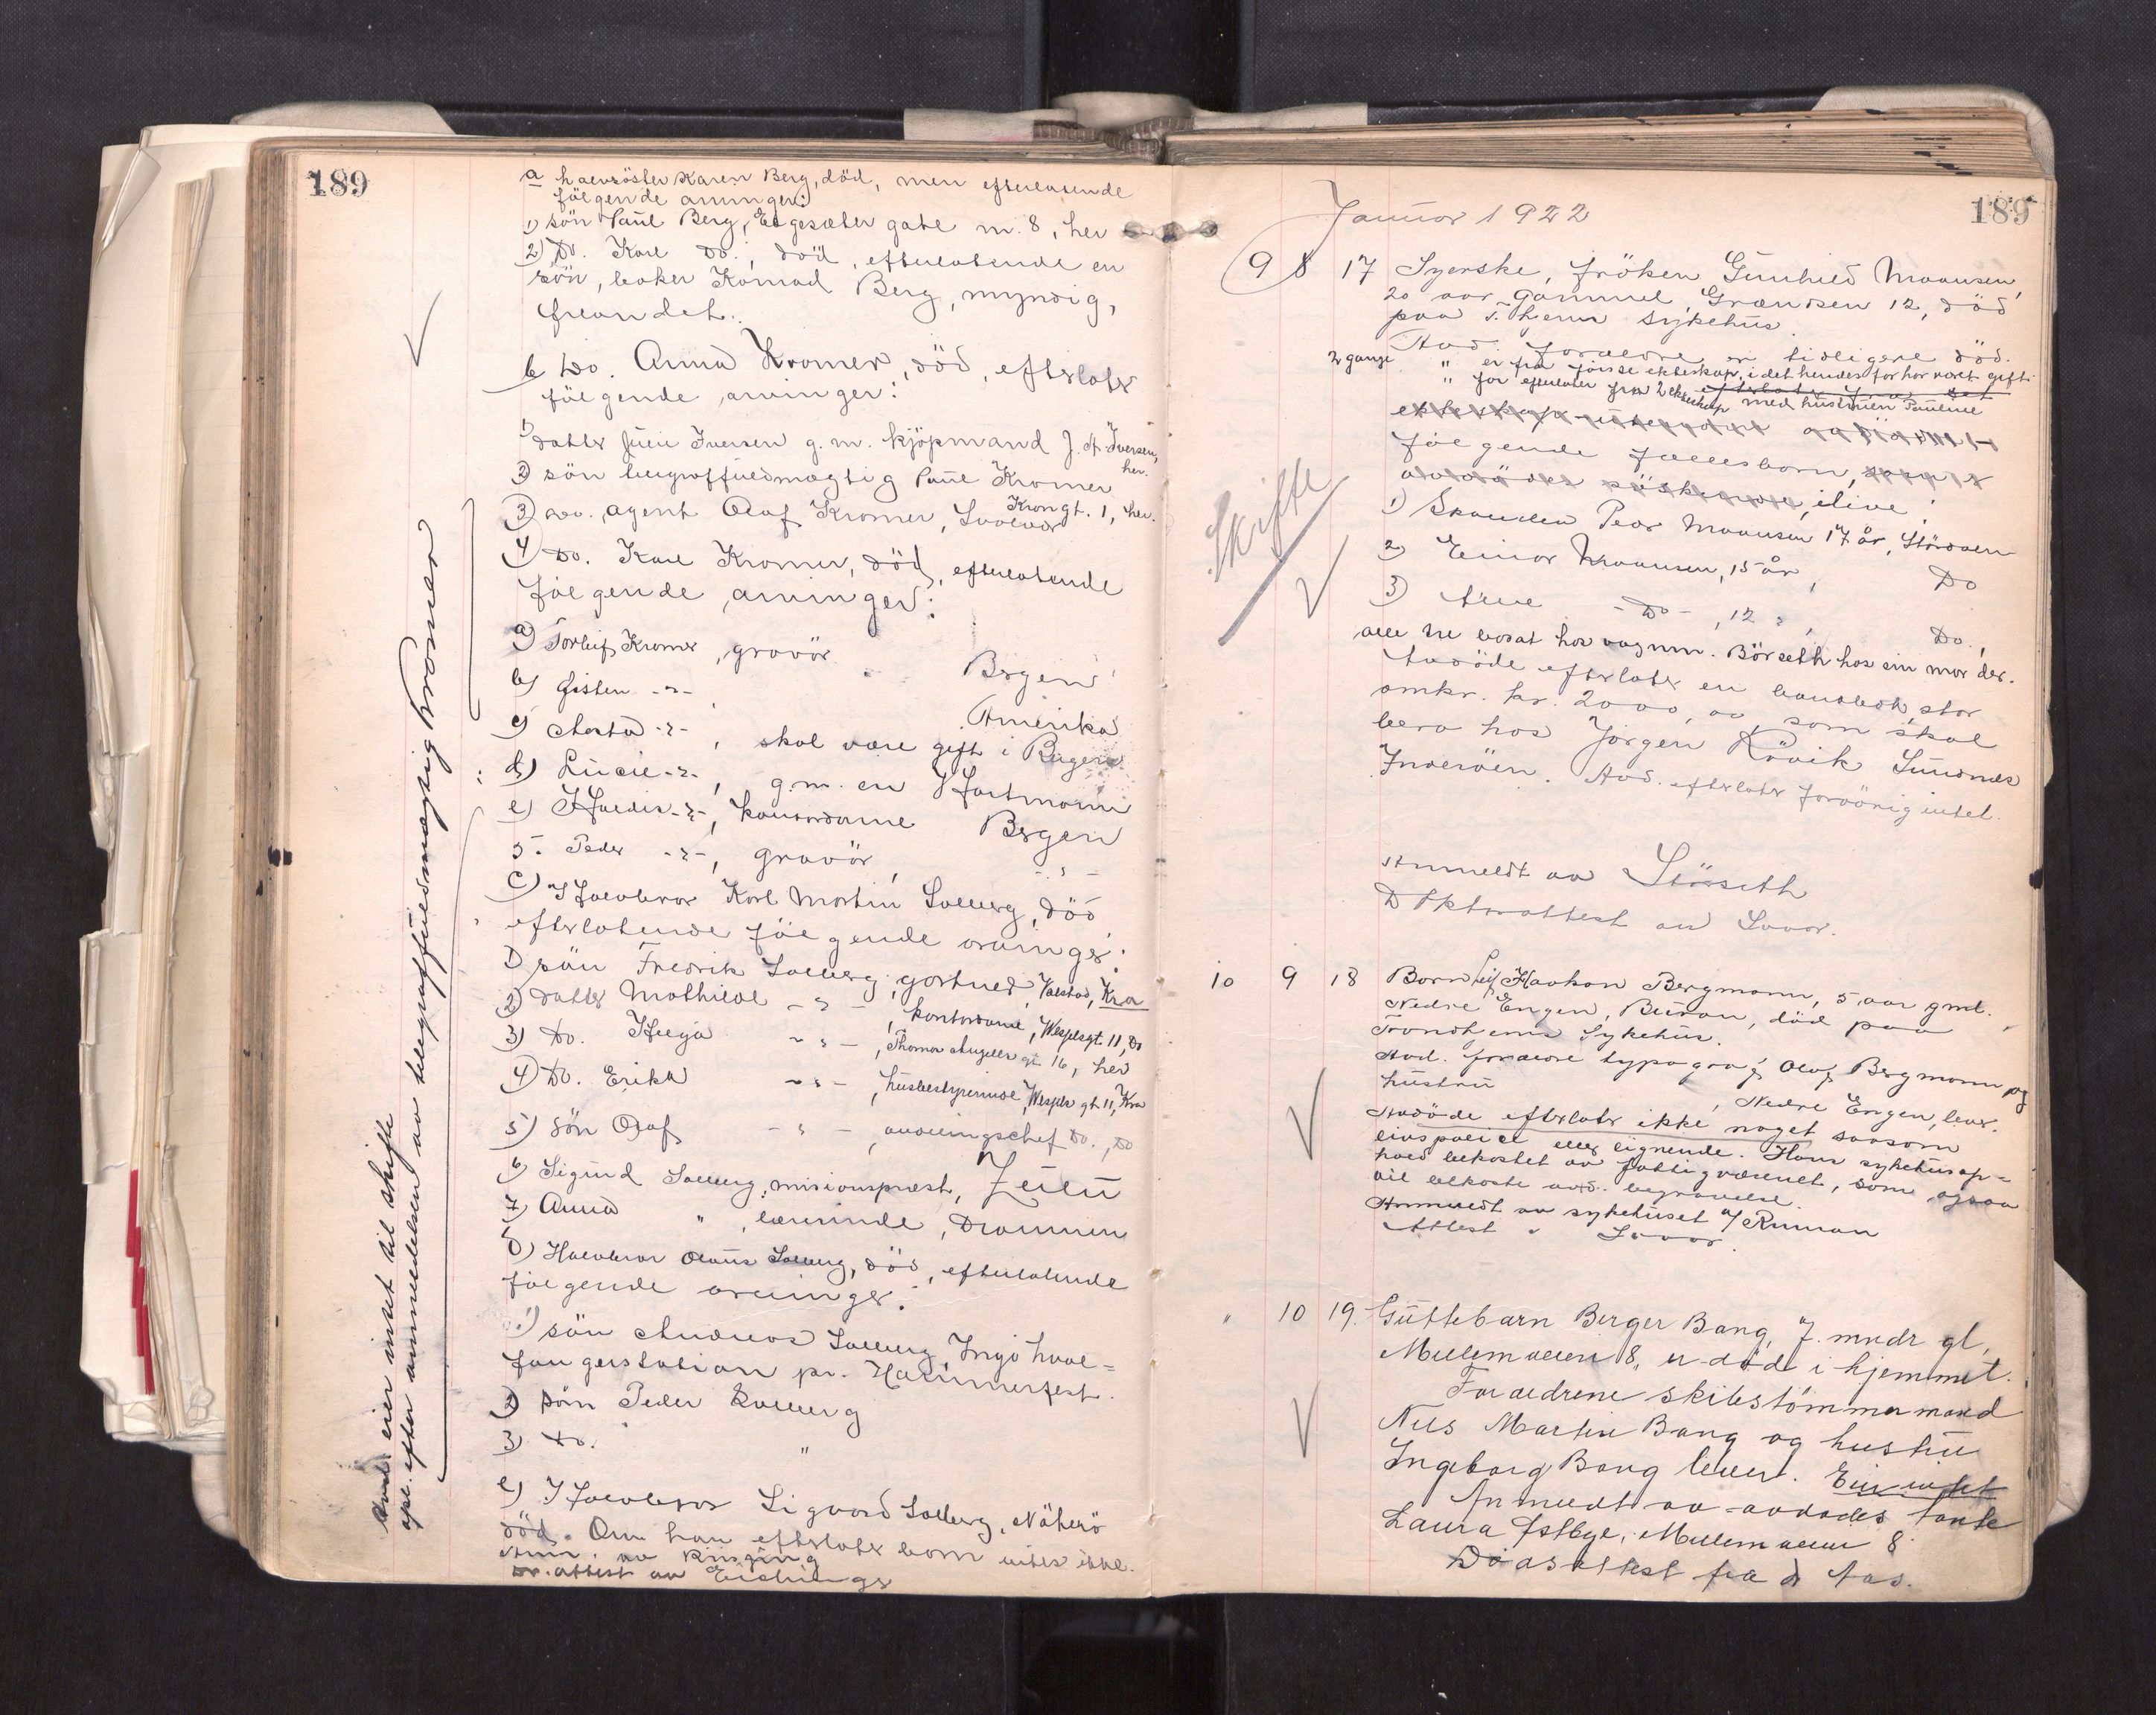 189
a halvsöster Karen Berg, död, men efterlatende
fölgende arvinger:
1) sön Paul Berg, Elgesæter gate nr. 8, her
2) Do. Karl Do., död, efterlatende en
sön, baker Konrad Berg, myndig,
fraandet.
b Do. Anna Kromer, död, efterlater
fölgende arvinger:
1) datter Julie Iversen g. m. kjöpmand J. A. Iversen,
her.
2) sön telegraffuldmægtig Paul Kromer
Krongt. 1, her.
3) Do. agent Olaf Kromer, Svolvær
4) Do. Karl Kromer, död, efterlatende
fölgende arvinger:
a) Torleif Kromer, gravör Bergen
b) Østen -"- , Amerika
c) Marta -"- , skal være gift i Bergen
d) Lucie -"- , g.m. en Hartmann
e) Haldis -"-, kontordame Bergen
5. Peder -"-, gravör, -"-
C) Halvbror Karl Martin Solberg, död
efterlatende fölgende arvinger:
1) sön Fredrik Solberg, gartner, Kra
2) datter Mathilde -"- , kontordame, Wesselsgt. 11, Do
3) Do. Helga -"- , Thomas Angells gt. 16, her
4) Do. Erika -"- , husbestyrerinde, Wessels gt. 11, Kra
5) sön Olaf -"- , avdelingschef Do., Do
6) Sigurd Solberg, misionsprest, Zulu
7) Anna " , lærerinde, Drammen
D) Halvbror Olaus Solberg, död, efterlatende
fölgende arvinger:
1) sön Andreas Solberg, Ingö hval=
fangerstation pr. Hammerfest.
2) sön Peder Solberg
3) Do. "
e) Halvbror Sigvard Solberg, Näherö
död. Om han efterlater barn vites ikke.
Anm. av
Dr. attest av
Avd. eier intet til skifte
opl. efter anmeldelsen av telegraffuldmægtig Kromer
189
Januar 1922
9 8 17 Syerske, fröken Gunhild Maansen,
20 aar gammel, Grændsen 12, död
paa T.hjems sykehus.
Avd. forældre er tidligere död.
" er fra förste ekteskap, idet hendes far har været gift
2 gange
" far efterlater fra 2 ekteskap med hustruen Pauline
fölgende fællesbarn, ilive:
1) Skouden Peder Maansen 17 år, Stördalen
2) Einar Maansen, 15 år, Do
3) -Do-, 12 ", Do.,
alle tre bosat hos vognm. Börseth hos sin mor der.
Avdöde efterlater en bankbok, stor
omkr. kr. 2000,00, som skal
bero hos Jörgen Rövik Sundnes
Inderöen. Avd. efterlater forövrig intet.
Skifte
Anmeldt av Störseth
Dktorattest av Lavor.
10 9 18 Barn Leif Haakon Bergmann, 5 aar gml.
Nedre Engen, Buran, död paa
Trondhjems Sykehus.
Avd. forældre typograf Olaf Bergmann og
hustru , Nedre Engen, lever.
Avdöde efterlater ikke noget saasom
livspolice eller lignende. Hans sykehusop=
hold bekostet av fattigvæsenet, som ogsaa
vil bekoste avd. begravelse.
Anmeldt av sykehuset v/ Ruman
Attest " Lavor.
" 10 19. Guttebarn Birger Bang, 7. mndr gl,
Mellemveien 8, er död i hjemmet.
Foraeldrene skibstömmermand
Nils Martin Bang og hustru
Ingeborg Bang lever. Eier intet
Anmeldt av avdödes tante
Laura Östbye, Mellemveien 8.
Dödsattest fra dr Aas.